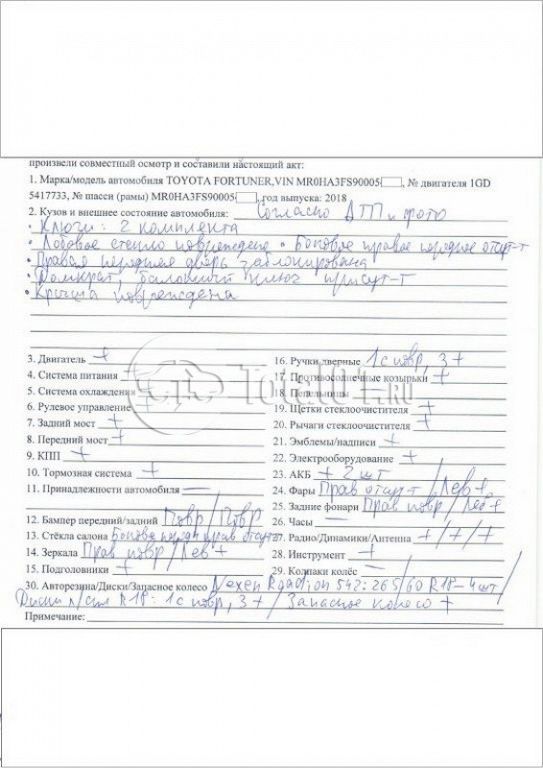 произвели совместный осмотр и составили настоящий акт:
1. Марка/модель автомобиля TOYOTA FORTUNER,VIN MR0HA3FS90005 , № двигателя 1GD
5417733, № шасси (рамы) MR0HA3FS90005 , год выпуска: 2018
2. Кузов и внешнее состояние автомобиля: Согласно ДТП и фото
• Ключи: 2 комплекта
• Лобовое стекло повреждено • Боковое правое переднее отсут-т
• Правая передняя дверь заблокирована
• Домкрат, балонный ключ присут-т
• Крыша повреждена
3. Двигатель +
4. Система питания
5. Система охлаждения +
6. Рулевое управление +
7. Задний мост +
8. Передний мост +
9. КПП +
10. Тормозная система +
11. Принадлежности автомобиля —
12. Бампер передний/задний Повр/Повр
13. Стёкла салона Боковое передн прав отсут
14. Зеркала Прав повр/Лев +
15. Подголовники +
16. Ручки дверные 1 с повр, 3 +
17. Противосолнечные козырьки +
18. Пепельницы
19. Щетки стеклоочистителя +
20. Рычаги стеклоочистителя +
21. Эмблемы/надписи +
22. Электрооборудование +
23. АКБ + 2 шт
24. Фары Прав отсут-т/Лев +
25. Задние фонари Прав повр/Лев +
26. Часы —
27. Радио/Динамики/Антенна +/+/+
28. Инструмент +
29. Колпаки колёс —
30. Авторезина/Диски/Запасное колесо Nexen Roadion 542: 265/60 R18 – 4 шт/
Диски л/спл R18: 1 с повр, 3 + / Запасное колесо +
Примечание:
Total01.RU